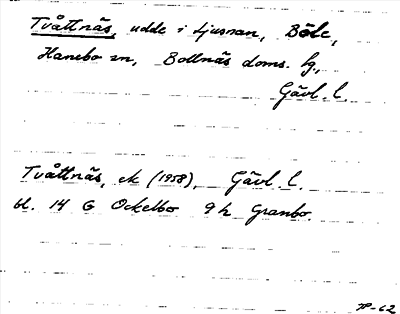 Tvättnäs, udde i Ljusnan, Böle,
Hanebo sn, Bollnäs doms. hg.,
Gävl. l.
Tvättnäs, ek (1958), Gävl. l.
bl. 14 G Ockelbo 9h Granbo.
-62